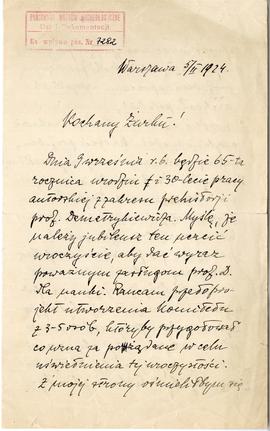 PAŃSTWOWE MUZEUM ARCHEOLOGICZNE
Dział Dokumentacji
Ks. wpływu poz. Nr 7282
Warszawa 5/II 1924.
Kochany Żurku!
Dnia 9 września r. b. będzie 65-ta
rocznica urodzin i 30-lecie pracy
autorskiej z zakresu prehistorji
prof. Demetrykiewicza. Myślę, że
należy jubileusz ten uczcić
uroczyście, aby dać wyraz
poważnym zasługom prof. D.
dla nauki. Rzucam przeto pro-
jekt utworzenia komitetu
z 3-5 osób, któryby przygotował
co uzna za pożądane w celu
uświetnienia tej uroczystości.
Z mojej strony ośmieliłbym się